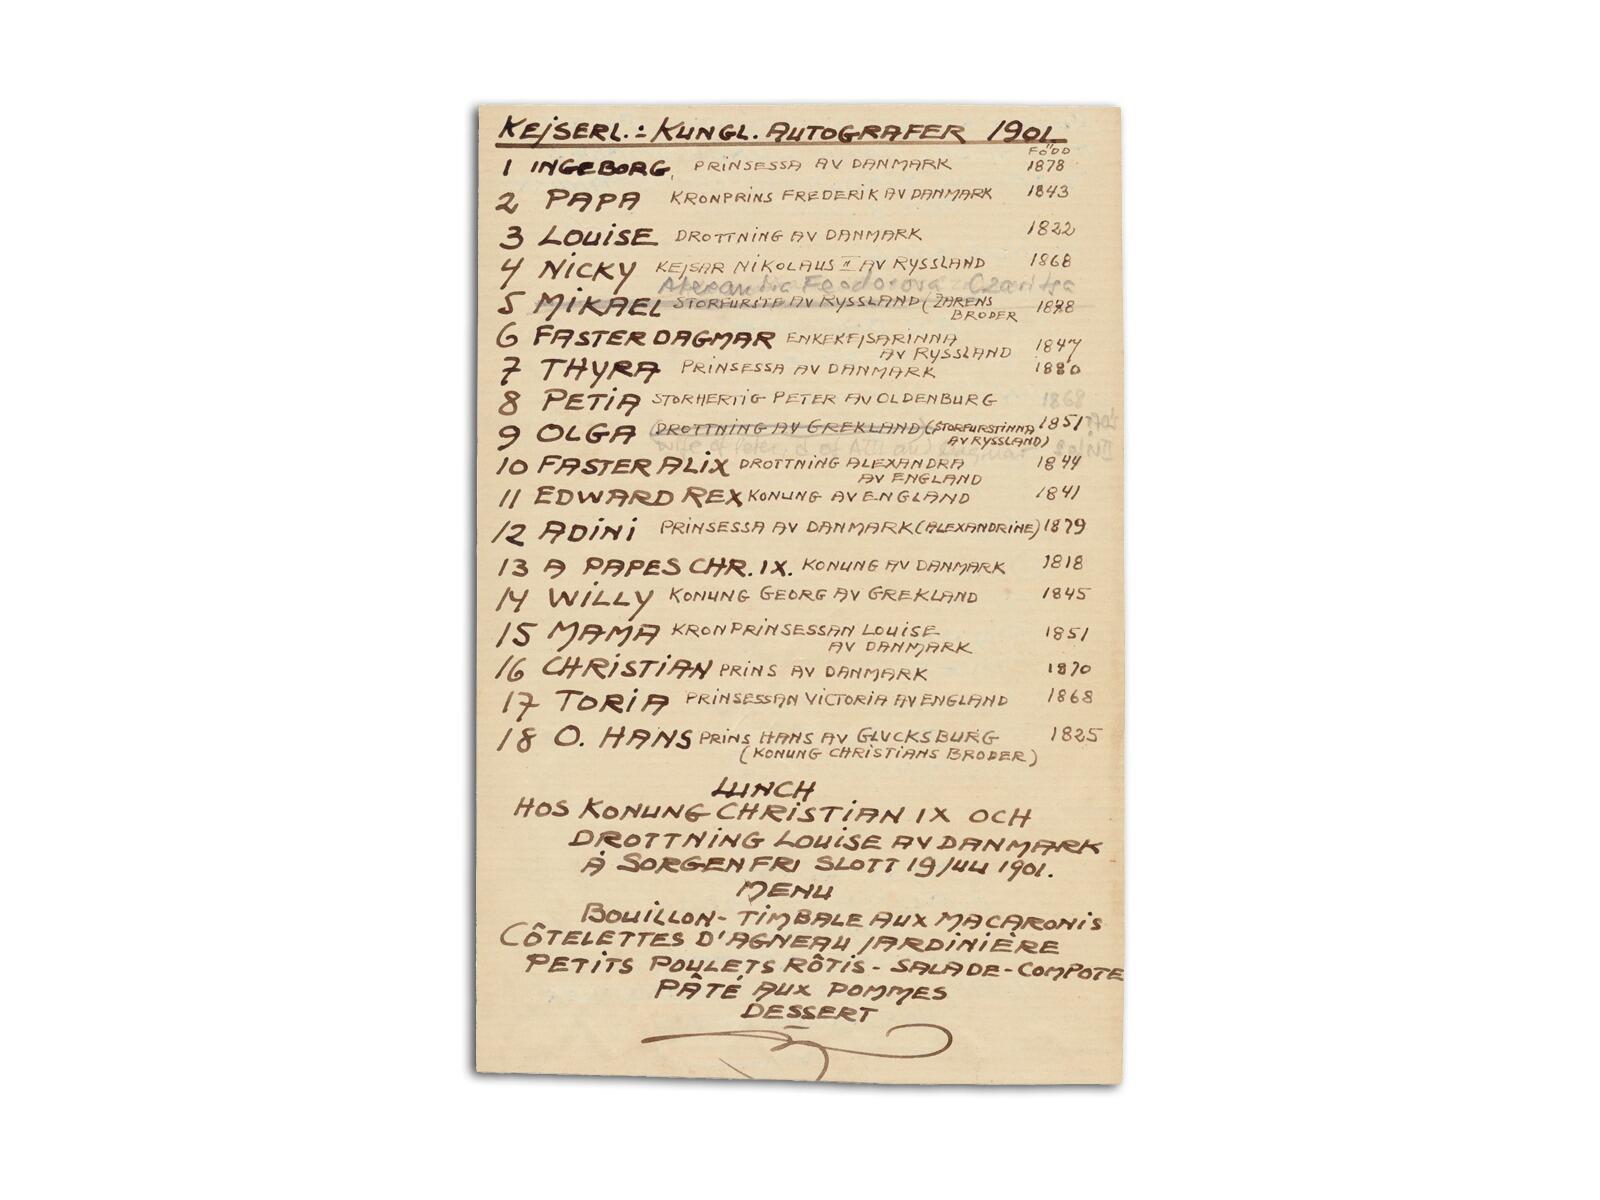 KEJSERL.: KUNGL. AUTOGRAFER 1901
FÖDD
1 INGEBORG, PRINSESSA AV DANMARK 1878
2 PAPA KRONPRINS FREDERIK AV DANMARK 1843
3 LOUISE DROTTNING AV DANMARK 1822
4 NICKY KEJSAR NIKOLAUS II AV RYSSLAND 1868
Alexandra Feodorovna Czaritsa
5 MIKAEL STORFURSTE AV RYSSLAND (ZARENS 1878
BRODER
6 FASTER DAGMAR ENKEKEJSARINNA
AV RYSSLAND 1847
7 THYRA PRINSESSA AV DANMARK 1880
8 PETIA STORHERTIG PETER AV OLDENBURG 1868
9 OLGA (DROTTNING AV GREKLAND) (STORFURSTINNA 1851
AV RYSSLAND)
wife of Peter, d. of AIII and Dagmar
10 FASTER ALIX DROTTNING ALEXANDRA 1844
AV ENGLAND
11 EDWARD REX KONUNG AV ENGLAND 1841
12 ADINI PRINSESSA AV DANMARK (ALEXANDRINE) 1879
13 A PAPES CHR. IX. KONUNG AV DANMARK 1818
14 WILLY KONUNG GEORG AV GREKLAND 1845
15 MAMA KRONPRINSESSAN LOUISE 1851
AV DANMARK
16 CHRISTIAN PRINS AV DANMARK 1870
17 TORIA PRINSESSAN VICTORIA AV ENGLAND 1868
18 O. HANS PRINS HANS AV GLUCKSBURG 1825
(KONUNG CHRISTIANS BRODER)
LUNCH
HOS KONUNG CHRISTIAN IX OCH
DROTTNING LOUISE AV DANMARK
Å SORGENFRI SLOTT 19/JULI 1901.
MENU
BOUILLON - TIMBALE AUX MACARONIS
CÔTELETTES D'AGNEAU JARDINIÈRE
PETITS POULETS RÔTIS - SALADE - COMPOTE
PÂTÉ AUX POMMES
DESSERT